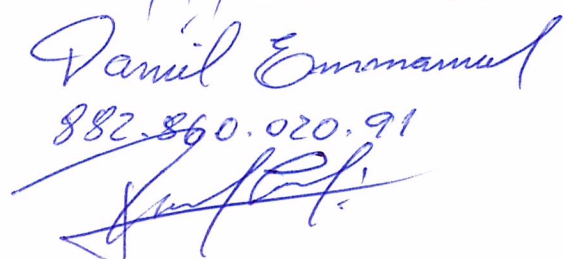 Daniel Emmanuel
882.860.020.91